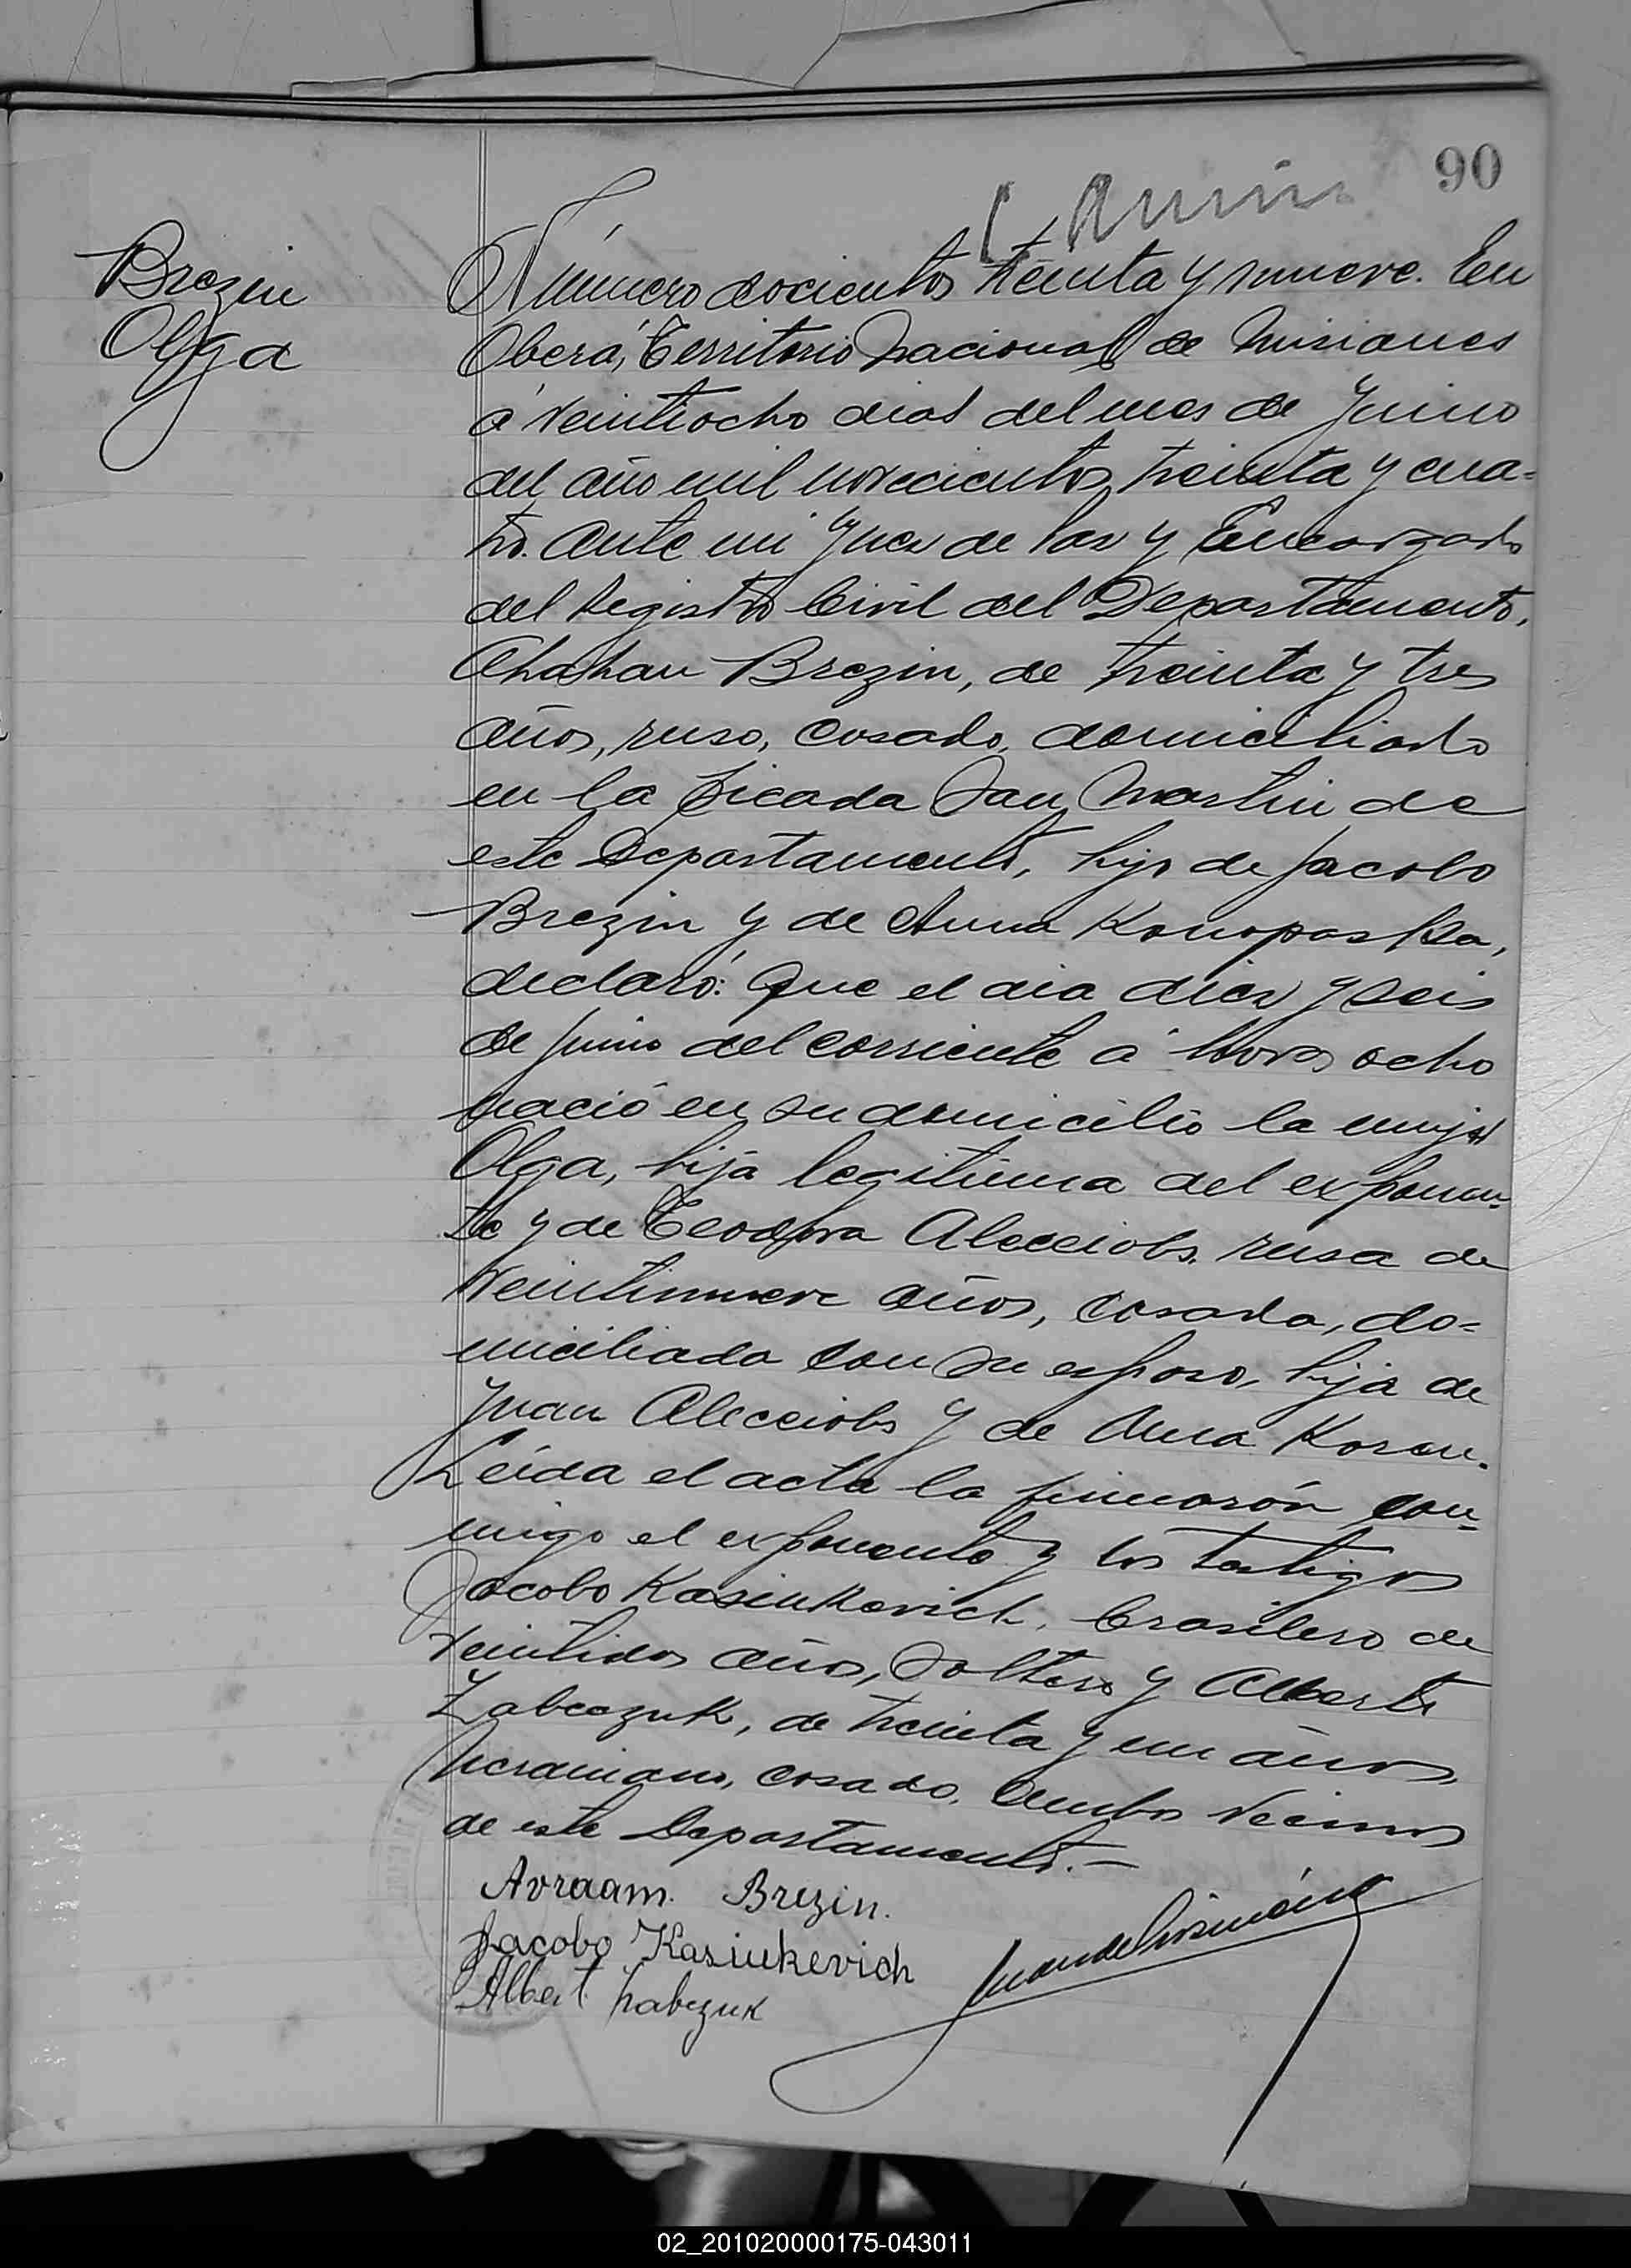 90
Brezin
Olga
Número docientos treinta y nueve. En
Oberá, Territorio Nacional de Misiones
á veintiocho dias del mes de Junio
del año mil novecientos treinta y cua=
tro. Ante mi Juez de Paz y Encargado
del Registro Civil del Departamento,
Brezin, de treinta y tres
años, ruso, casado, domiciliado
en la Picada San Martin de
este Departamento, hijo de Jacobo
Brezin y de Anna Konopaska,
declaró: Que el dia diez y seis
de Junio del corriente á horas ocho
nació en su domicilio la mujer
Olga, hija legitima del exponen=
te y de Teodora rusa de
veintinueve años, casada, do=
miciliada con su esposo, hija de
Juan y de Ana
Leida el acta la firmarón con=
migo el exponente y los testigos
Jacobo Kasiukevich, brasilero de
veintidos años, soltero y Alberto
de treinta y un años,
Ucraniano, casado, ambos vecinos
de este Departamento.—
Avraam. Brezin.
Jacobo Kasiukevich
Albert
02_201020000175-043011